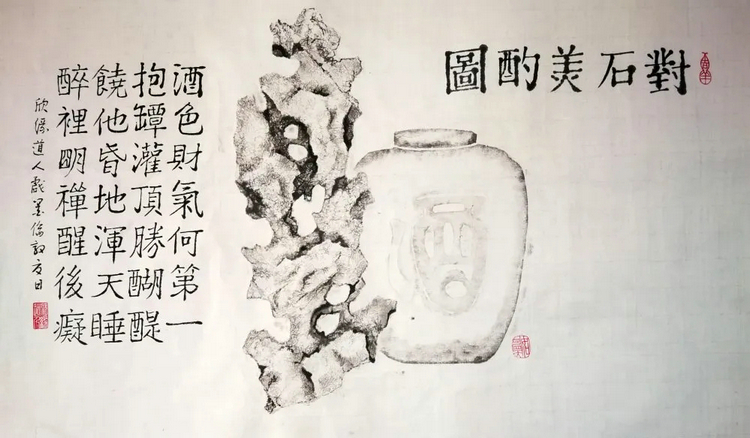 對石羙酌圖
酒
酒色財氣何第一
抱罈灌頂勝醐醍
饒他昏地渾天睡
醉裡明禪醒後癡
道人戲墨倫敦夏日